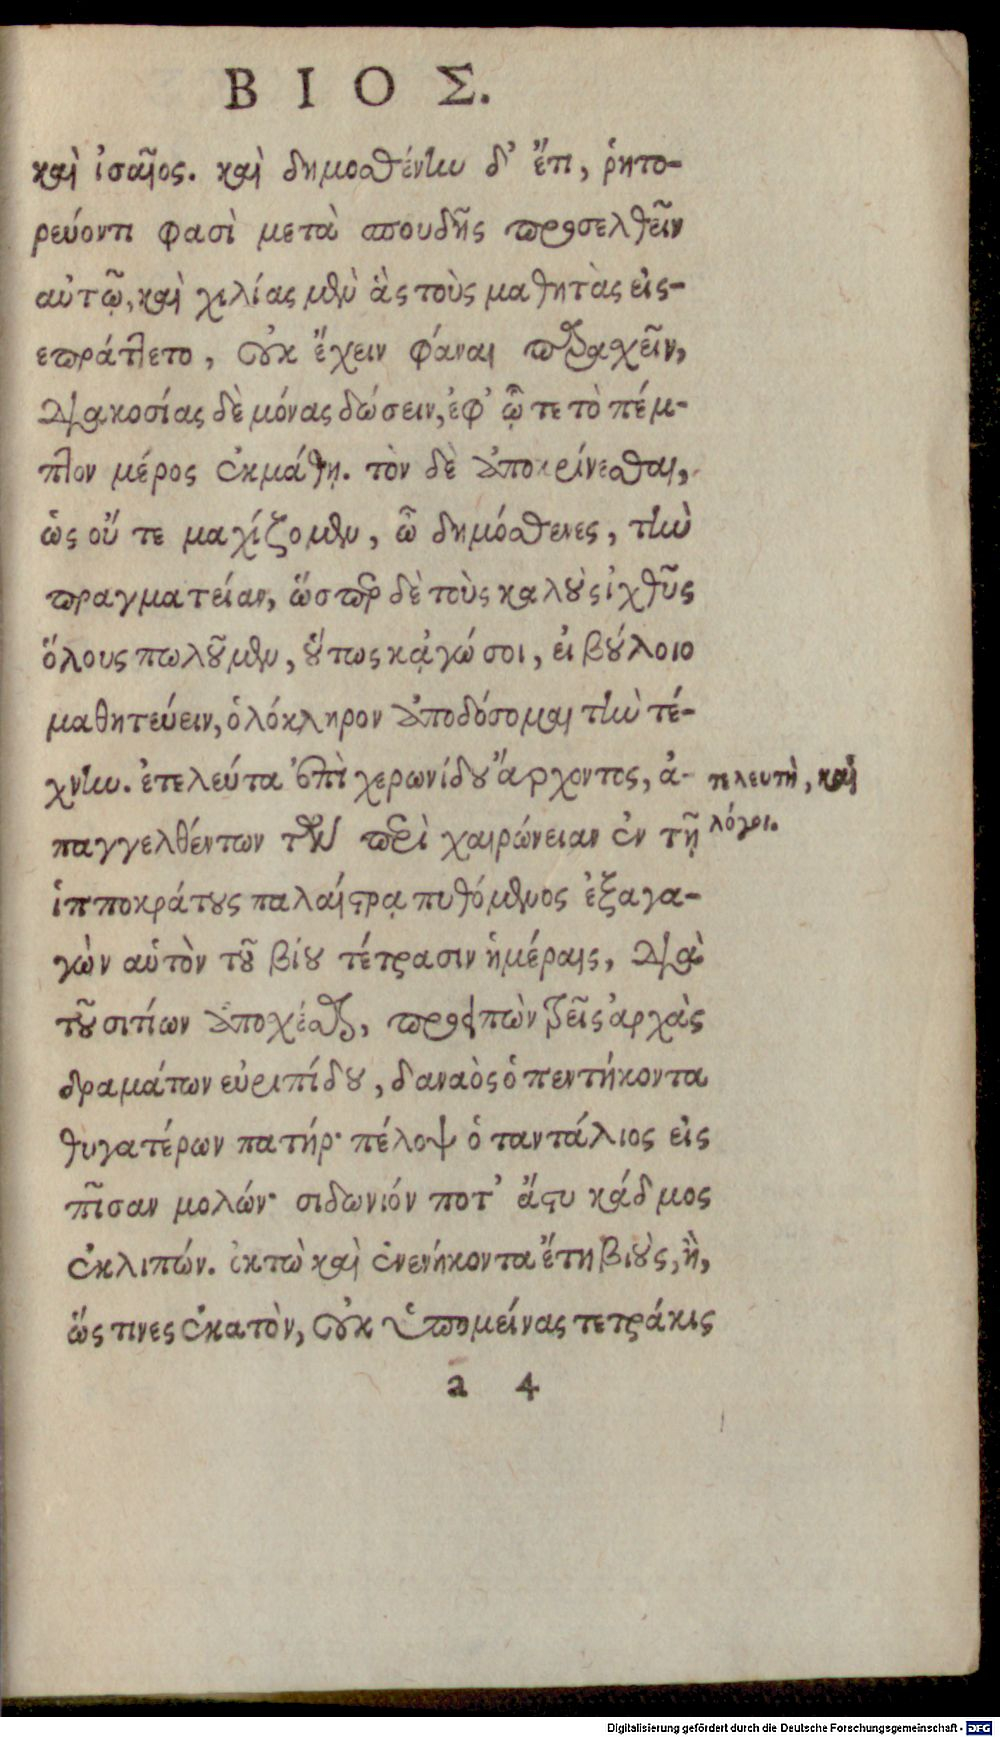 ΒΙΟΣ.
καὶ ἰσαῖος. καὶ δημοσθένην δ' ἔτι, ῥητο-
ρεύοντι φασὶ μετὰ σπουδῆς προσελθεῖν
αὐτῷ, καὶ χιλίας μὲν ἃς τοὺς μαθητὰς εἰς-
επράττετο, οὐκ ἔχειν φάναι παραχεῖν,
διακοσίας δὲ μόνας δώσειν, ἐφ' ᾧ τε τὸ πέμ-
πτον μέρος ἐκμάθῃ. τὸν δὲ ἀποκρίνεσθαι,
ὡς οὔ τε μαχίζομεν, ὦ δημόσθενες, τὴν
πραγματείαν, ὥσπερ δὲ τοὺς καλοὺς ἰχθῦς
ὅλους πωλοῦμεν, οὕτως κᾀγώ σοι, εἰ βούλοιο
μαθητεύειν, ὁλόκληρον ἀποδόσομαι τὴν τέ-
χνην. ἐτελεύτα ἐπὶ χερωνίδου ἄρχοντος, ἀ-
παγγελθέντων τῶν περὶ χαιρώνειαν ἐν τῇ
ἱπποκράτους παλαίστρᾳ πυθόμενος ἐξαγα-
γὼν αὑτὸν τοῦ βίου τέτρασιν ἡμέραις, διὰ
τοῦ σιτίων ἀποχέσθαι, προειπὼν τρεῖς ἀρχὰς
δραμάτων εὐριπίδου, δαναὸς ὁ πεντήκοντα
θυγατέρων πατήρ· πέλοψ ὁ ταντάλιος εἰς
πῖσαν μολών· σιδωνιόν ποτ' ἄστυ κάδμος
ἐκλιπών. ὀκτὼ καὶ ἐνενήκοντα ἔτη βιοὺς, ἢ,
ὥς τινες ἑκατὸν, οὐκ ὑπομείνας τετράκις
a 4
τελευτὴ, καὶ
λόγοι.
Digitalisierung gefördert durch die Deutsche Forschungsgemeinschaft - DFG